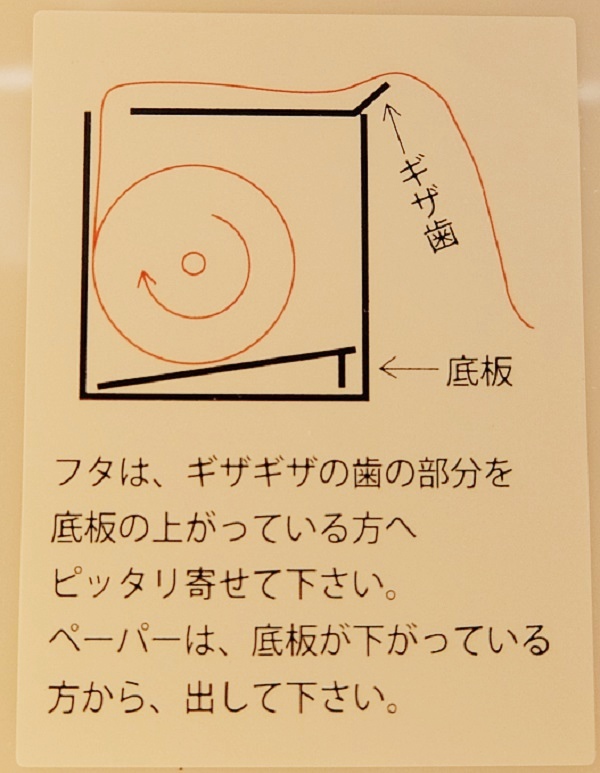 ギザ歯
底板
フタは、ギザギザの歯の部分を
底板の上がっている方へ
ピッタリ寄せて下さい。
ペーパーは、底板が下がっている
方から、出して下さい。